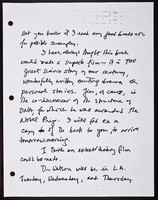 let you know if I read any good books or
for possible screenplay.
I have always thought this book
would make a superb film – it is THE
great science story of our century,
wonderfully written exciting drama, &
personal stories. Jim, of course, is
the co-discoverer of the structure of
DNA for which he was awarded the
Nobel Prize. I will fed ex a
copy of the book to you, to arrive
tomorrow morning.
I think an extraordinary film
could be made.
Dr. Watson will be in L.A.
Tuesday, Wednesday, and Thursday